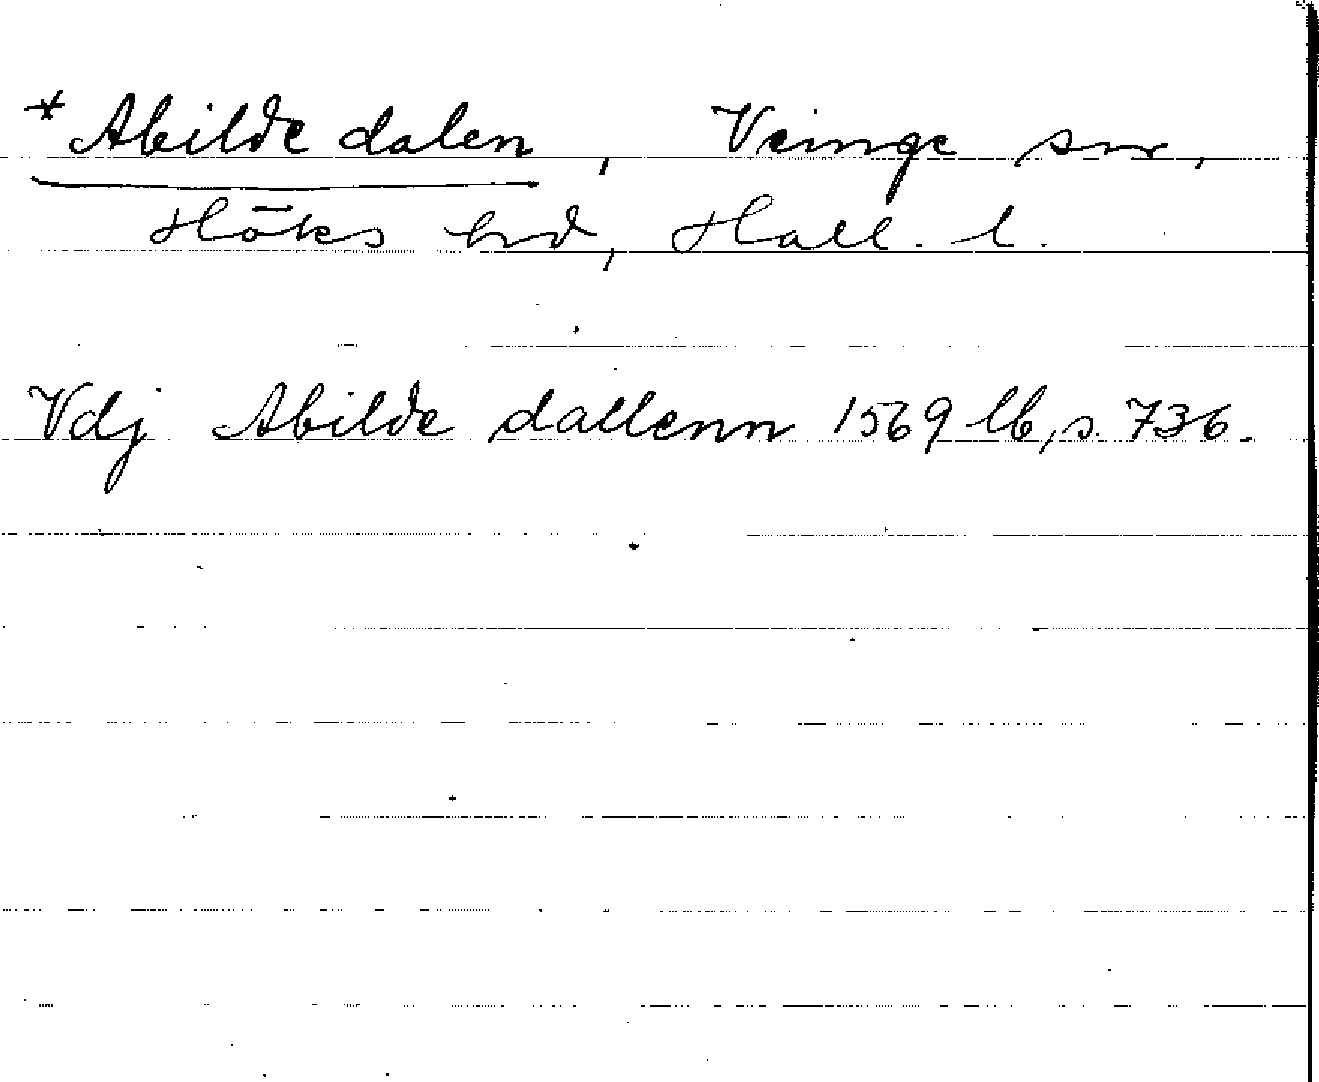 * Abilde dalen, Veinge sn,
Höks hd, Hall. l.
Vdj Abilde dallenn 1569 lb, s. 736.